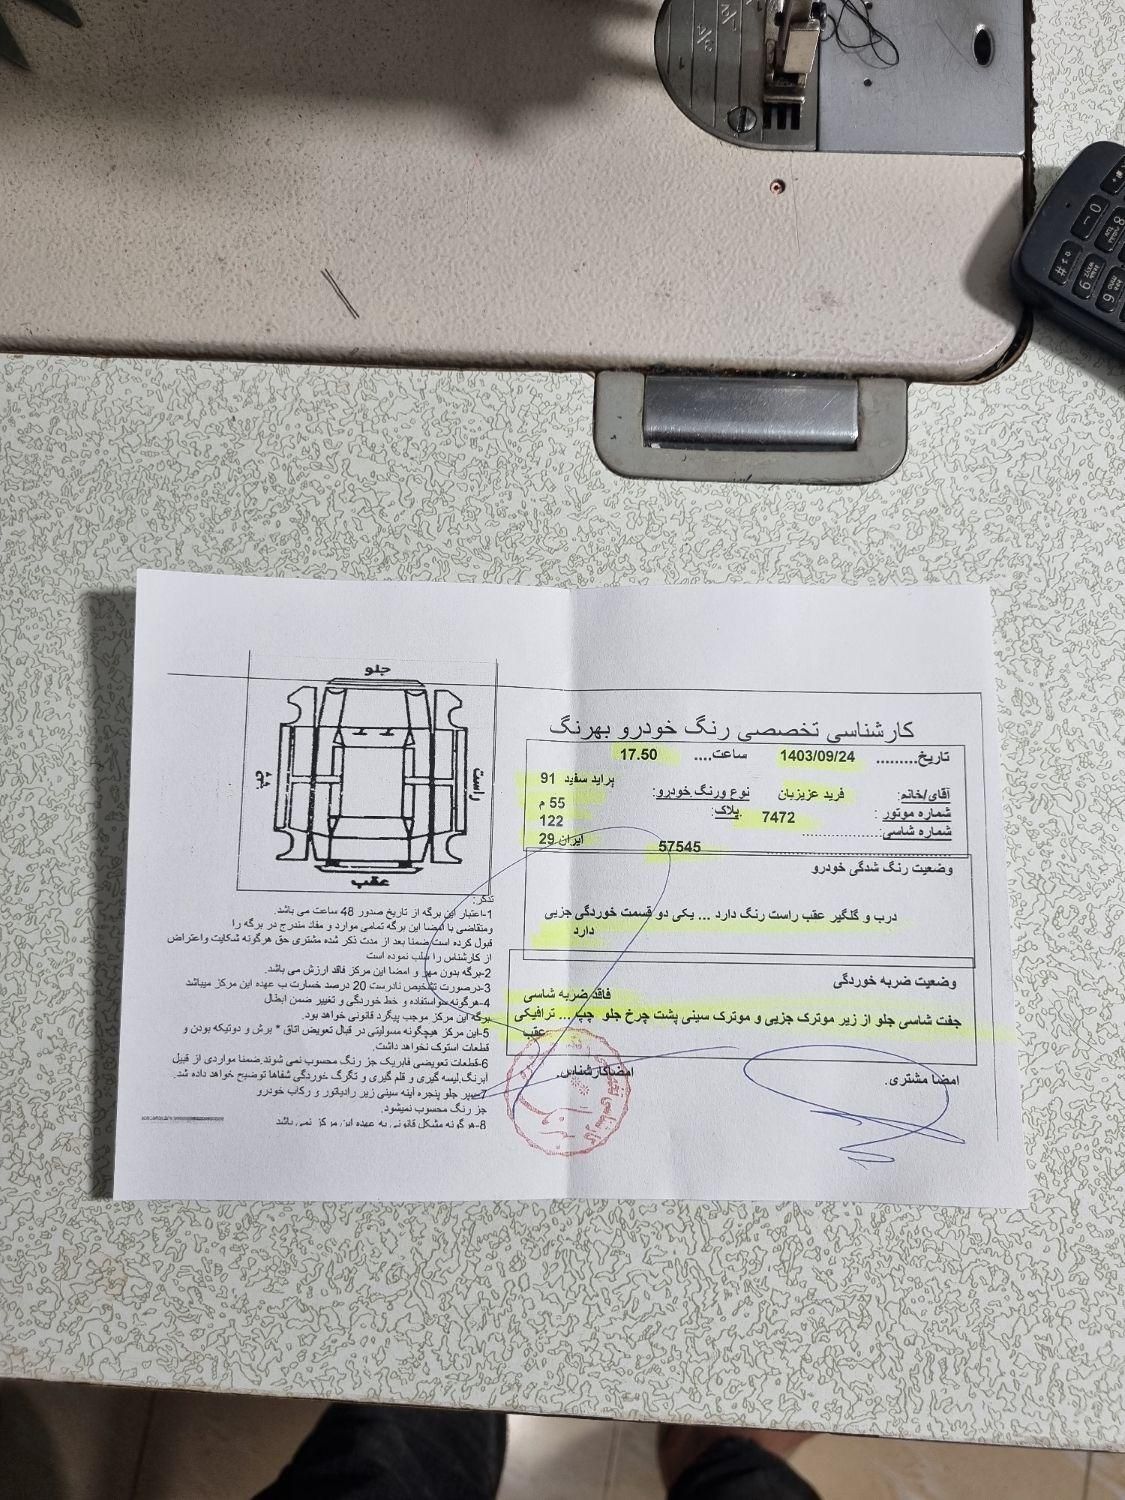 کارشناسی تخصصی رنگ خودرو بهرنگ
تاریخ......... 1403/09/24 ساعت.... 17.50
آقای/خانم: فرید عزیزیان نوع ورنگ خودرو: پراید سفید 91
شماره موتور : 7472 پلاک: 55 م
122
ایران 29
شماره شاسی: 57545
وضعیت رنگ شدگی خودرو
درب و گلگیر عقب راست رنگ دارد ... یکی دو قسمت خوردگی جزیی
دارد
وضعیت ضربه خوردگی
فاقد ضربه شاسی
جفت شاسی جلو از زیر موترک جزیی و موترک سینی پشت چرخ جلو چپ ... ترافیکی
عقب
امضا مشتری.
امضاکارشناس.
جلو
چپ
راست
عقب
تذکر:
1-اعتبار این برگه از تاریخ صدور 48 ساعت می باشد.
ومتقاضی با امضا این برگه تمامی موارد و مفاد مندرج در برگه را
قبول کرده است ضمنا بعد از مدت ذکر شده مشتری حق هرگونه شکایت واعتراض
از کارشناس را سلب نموده است
2-برگه بدون مهر و امضا این مرکز فاقد ارزش می باشد.
3-درصورت تشخیص نادرست 20 درصد خسارت ب عهده این مرکز میباشد
4-هرگونه سواستفاده و خط خوردگی و تغییر ضمن ابطال
برگه این مرکز موجب پیگرد قانونی خواهد بود.
5-این مرکز هیچگونه مسولیتی در قبال تعویض اتاق * برش و دوتیکه بودن و
قطعات استوک نخواهد داشت.
6-قطعات تعویضی فابریک جز رنگ محسوب نمی شوند ضمنا مواردی از قبیل
ابرنگ.لیسه گیری و قلم گیری و تگرگ خوردگی شفاها توضیح خواهد داده شد.
7-سپر جلو پنجره آینه سینی زیر رادیاتور و رکاب خودرو
جز رنگ محسوب نمیشود.
8-هرگونه مشکل قانونی به عهده این مرکز نمی باشد